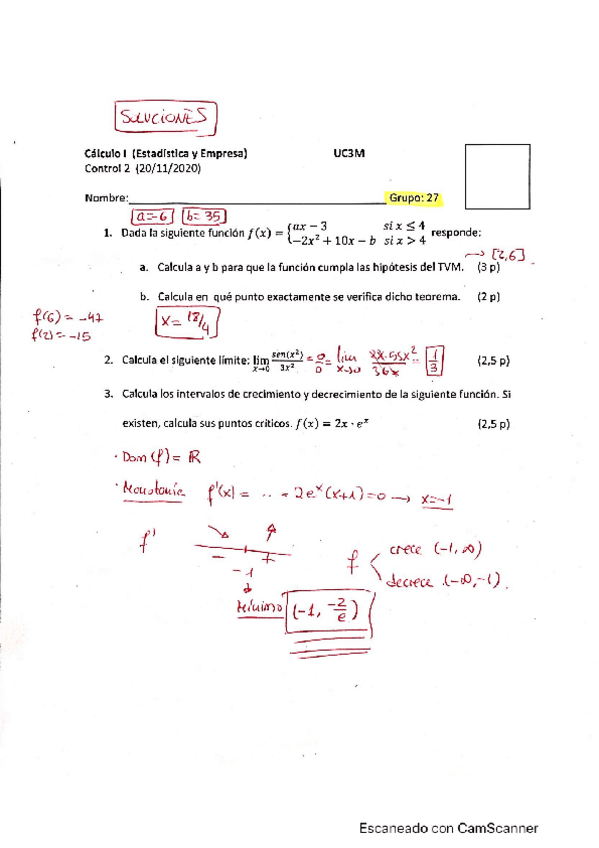 SOLUCIONES
Cálculo I (Estadística y Empresa) UC3M
Control 2 (20/11/2020)
Nombre:______ Grupo: 27
a=-6 b=35
1. Dada la siguiente función f(x) = {ax − 3 si x ≤ 4
−2x² + 10x − b si x > 4 responde:
→ [2,6]
a. Calcula a y b para que la función cumpla las hipótesis del TVM. (3 p)
b. Calcula en qué punto exactamente se verifica dicho teorema. (2 p)
f(6) = -47
f(2) = -15
x = 18/4
2. Calcula el siguiente límite: lim x→0 sen(x²)/3x² = 0/0 = lim x→0 = 1/3 (2,5 p)
3. Calcula los intervalos de crecimiento y decrecimiento de la siguiente función. Si
existen, calcula sus puntos críticos. f(x) = 2x · eˣ (2,5 p)
· Dom(f) = ℝ
· Monotonía f'(x) = ... = 2eˣ(x+1) = 0 → x = -1
f' − +
-1
f crece (-1, ∞)
decrece (-∞, -1).
Mínimo (-1, -2/e)
Escaneado con CamScanner